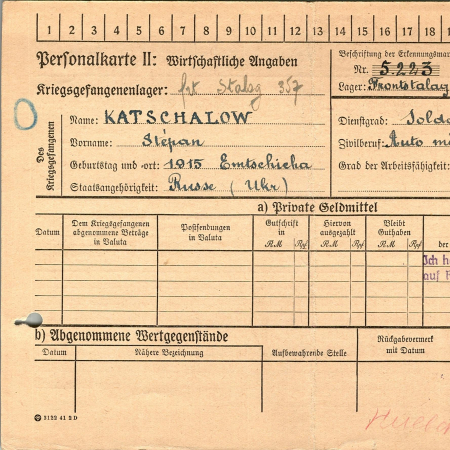 1 2 3 4 5 6 7 8 9 10 11 12 13 14 15 16 17 18
Personalkarte II: Wirtschaftliche Angaben
Beschriftung der Erkennungsmar
Nr. 5223
Kriegsgefangenenlager: Stalag 357
Lager: Frontstalag
Des Kriegsgefangenen
Name: KATSCHALOW
Dienstgrad: Solda
Vorname: Stépan
Zivilberuf: Auto mé
Geburtstag und -ort: 1915 Emtschicha
Grad der Arbeitsfähigkeit:
Staatsangehörigkeit: Russe (Ukr)
a) Private Geldmittel
Datum
Dem Kriegsgefangenen abgenommene Beträge in Valuta
Postsendungen in Valuta
Gutschrift in
RM Rpf
Hiervon ausgezahlt
RM Rpf
Bleibt Guthaben
RM Rpf
der
Ich h
auf
b) Abgenommene Wertgegenstände
Datum
Nähere Bezeichnung
Aufbewahrende Stelle
Rückgabevermerk mit Datum
3122 41 2 D